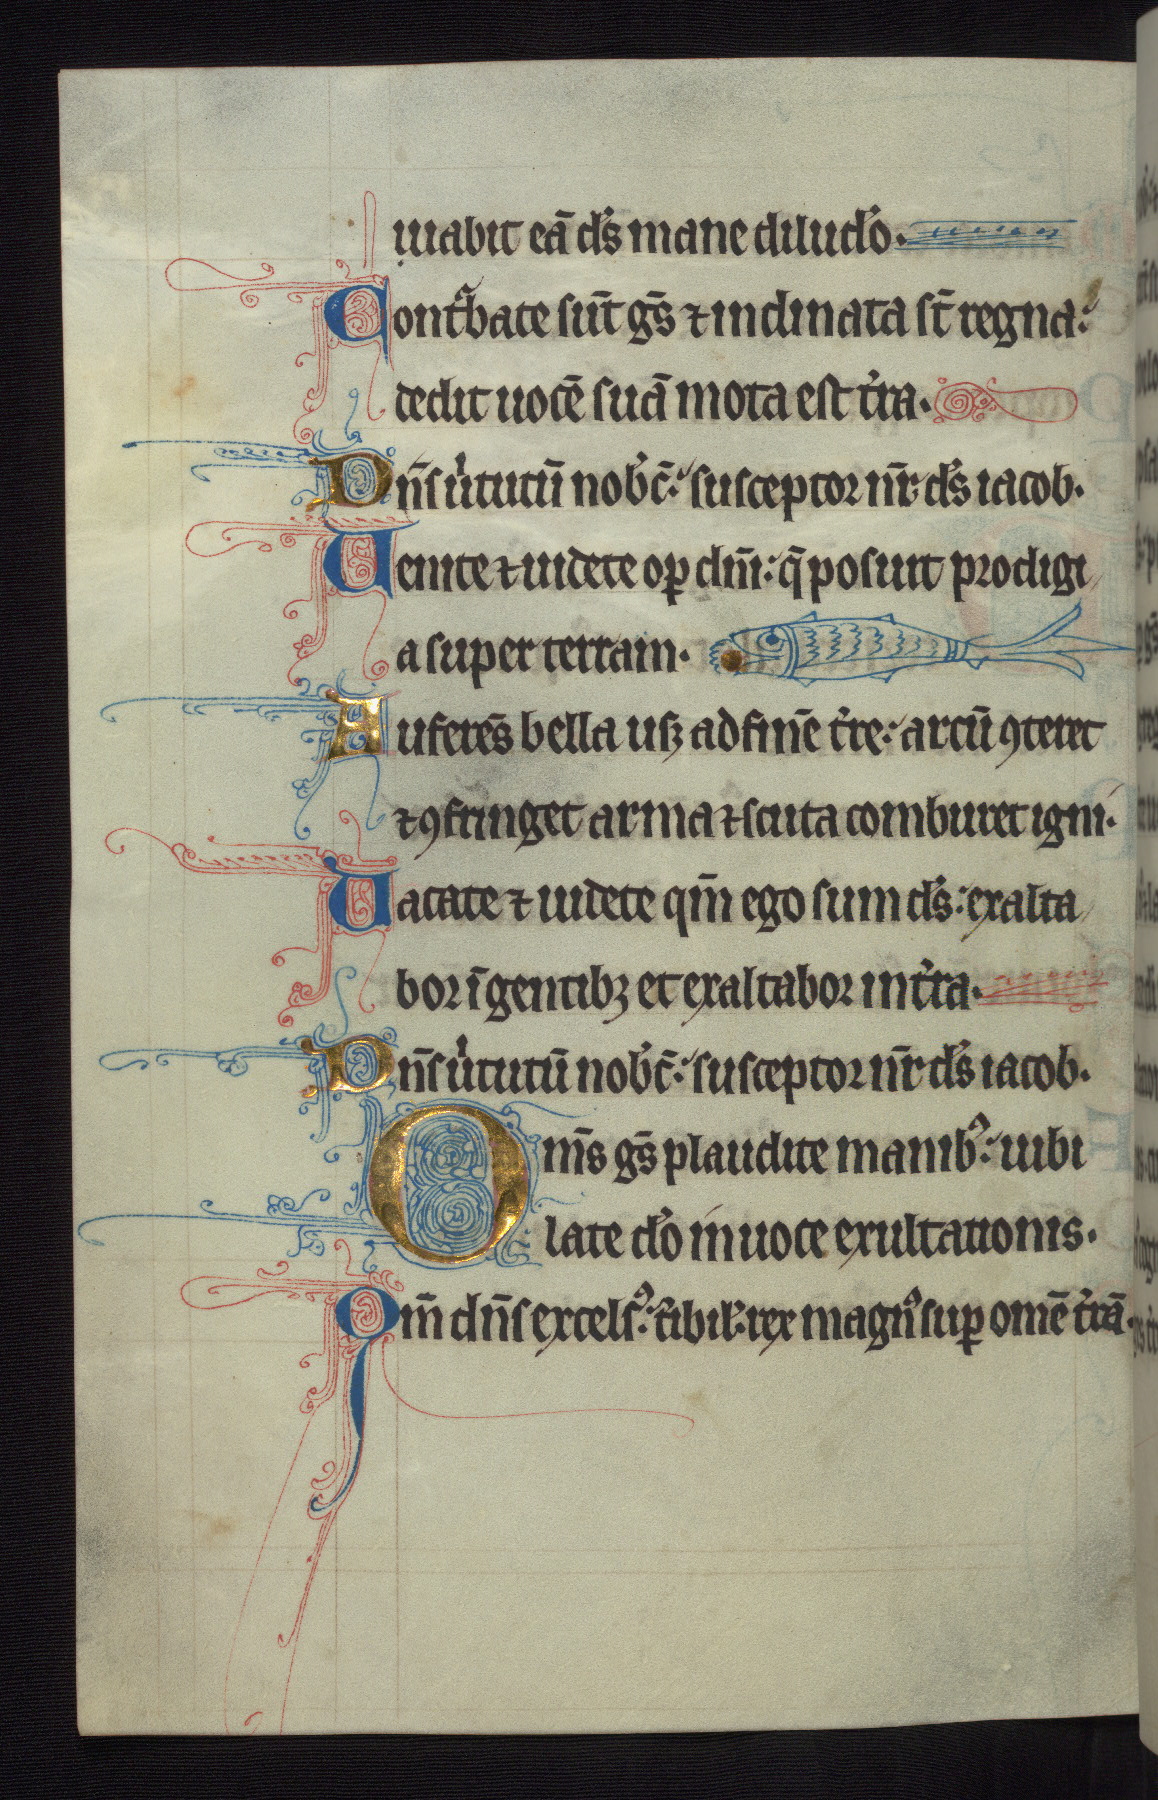 iuuabit eā ds̄ mane diluclo.
Conturbate sūt gs̄ ⁊ inclinata st̄ regna:
dedit uocē suā mota est tr̄ra.
Dn̄s uirtutū nobc̄: susceptor nr̄ ds̄ iacob.
Uenite ⁊ uidete oꝑ dn̄i: q̄ posuit prodigi
a super terram.
Auferēs bella usꝫ ad finē tr̄re: arcū ꝯteret
⁊ ꝯfringet arma ⁊ scuta comburet igni.
Uacate ⁊ uidete qm̄ ego sum ds̄: exalta
bor ī gentibꝫ et exaltabor in tr̄ra.
Dn̄s uirtutū nobc̄: susceptor nr̄ ds̄ iacob.
Omn̄s gs̄ plaudite manibꝰ: iubi
late do in uoce exultationis.
Qm̄ dn̄s excelsꝰ: tr̄ibil: rex magnꝰ suꝑ omē tr̄rā.